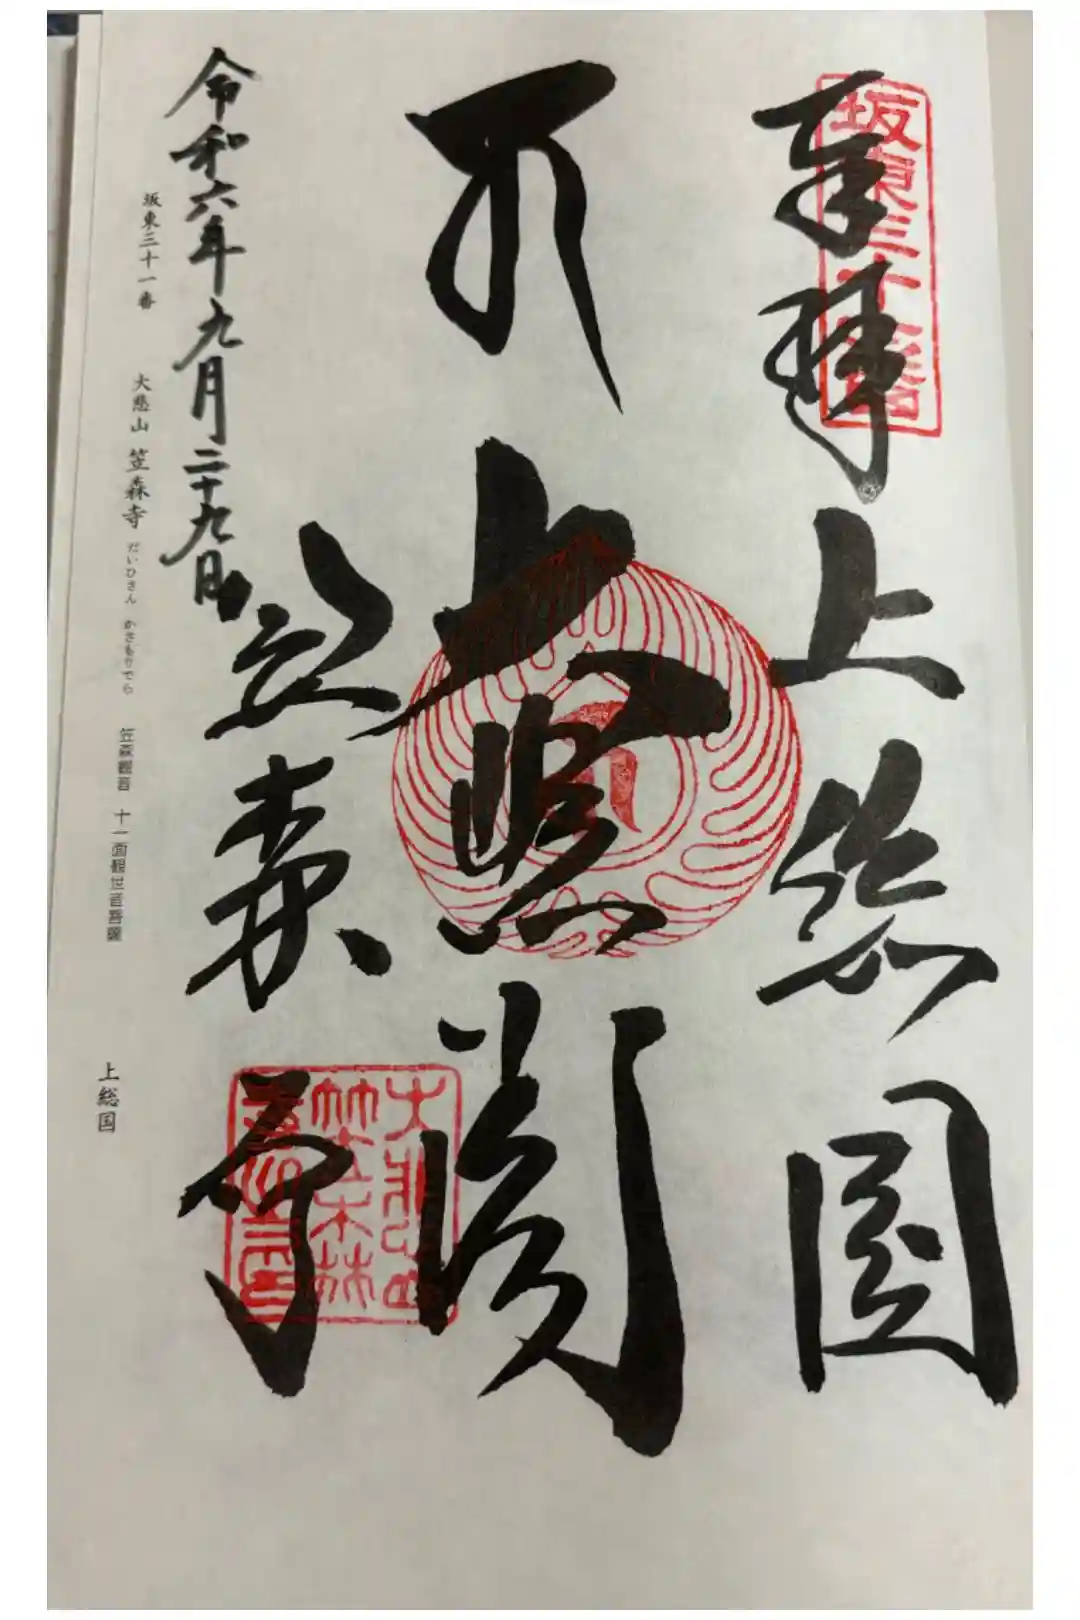 坂東三十一番
奉拝
上総国
大悲閣
笠森寺
令和六年九月二十九日
坂東三十一番 大悲山 笠森寺 だいひさん かさもりでら 笠森観音 十一面観世音菩薩 上総国